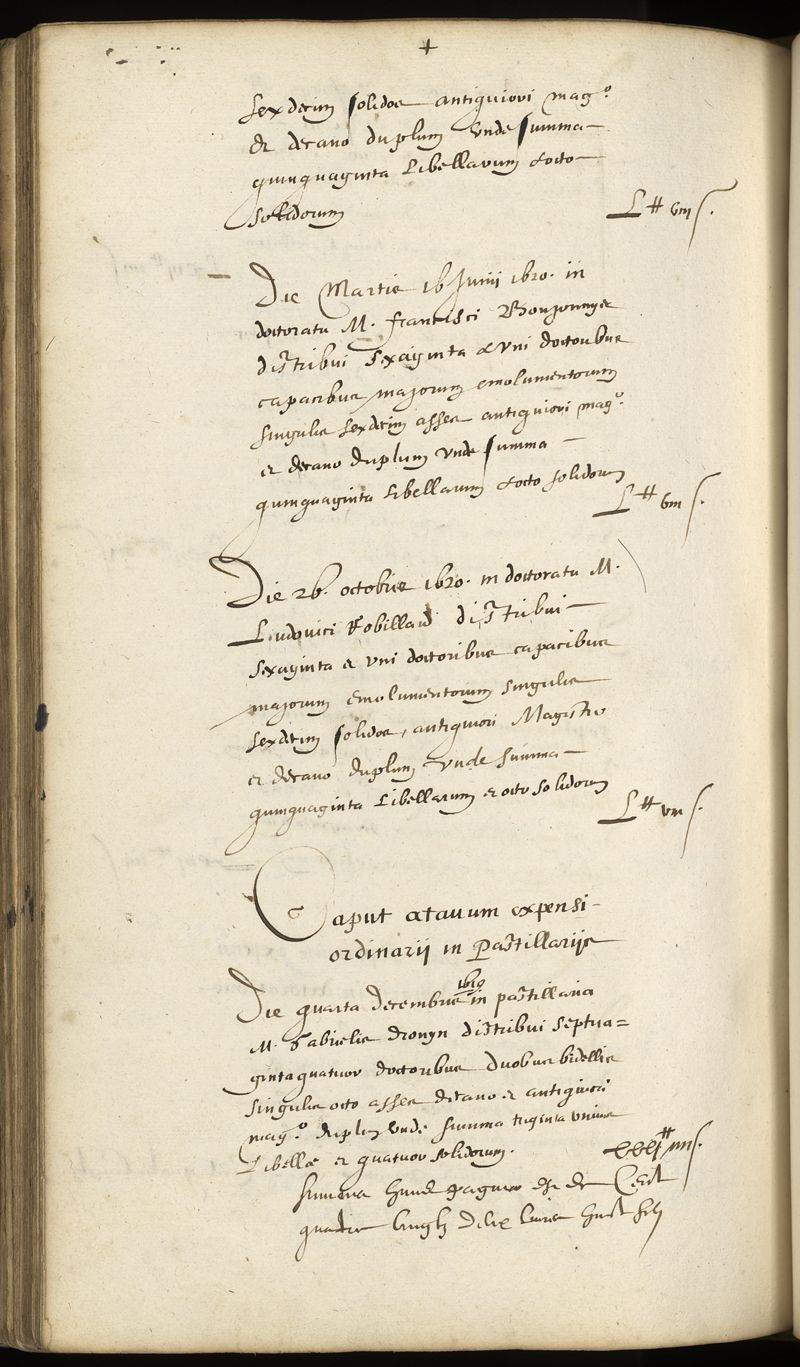 +
sexdecim solidos antiquiori mag.o
et decano duplum unde summa
quinquaginta Libellarum & octo
solidorum
L ## viii s.
Die Martis 16 Junii 1620. in
doctoratu M. Francisci
distribui sexaginta & uni doctoribus
capacibus majorum emolumentorum
singulis sexdecim asses antiquiori mag.o
et decano duplum unde summa
quinquaginta libellarum & octo solidorum
L ## viii s.
Die 26. octobris 1620. in doctoratu M.
Ludovici Robillard distribui
sexaginta et uni doctoribus capacibus
majorum emolumentorum singulis
sexdecim solidos, antiquiori Magistro
et decano duplum unde summa
quinquaginta Libellarum et octo solidorum
L ## viii s.
Caput octauum expensi
ordinarij in Pastillarijs
Die quarta decembris 1619 in pastillaria
M. Gabrielis Dronyn distribui septua=
ginta quatuor doctoribus duobus bidellis
singulis octo asses decano et antiquiori
mag.o duplum unde summa triginta unius
Libellæ et quatuor solidorum.
xxxj ## iiii s.
Summa huius paginæ est de Cent
quatre vingtz dix livres huict solz